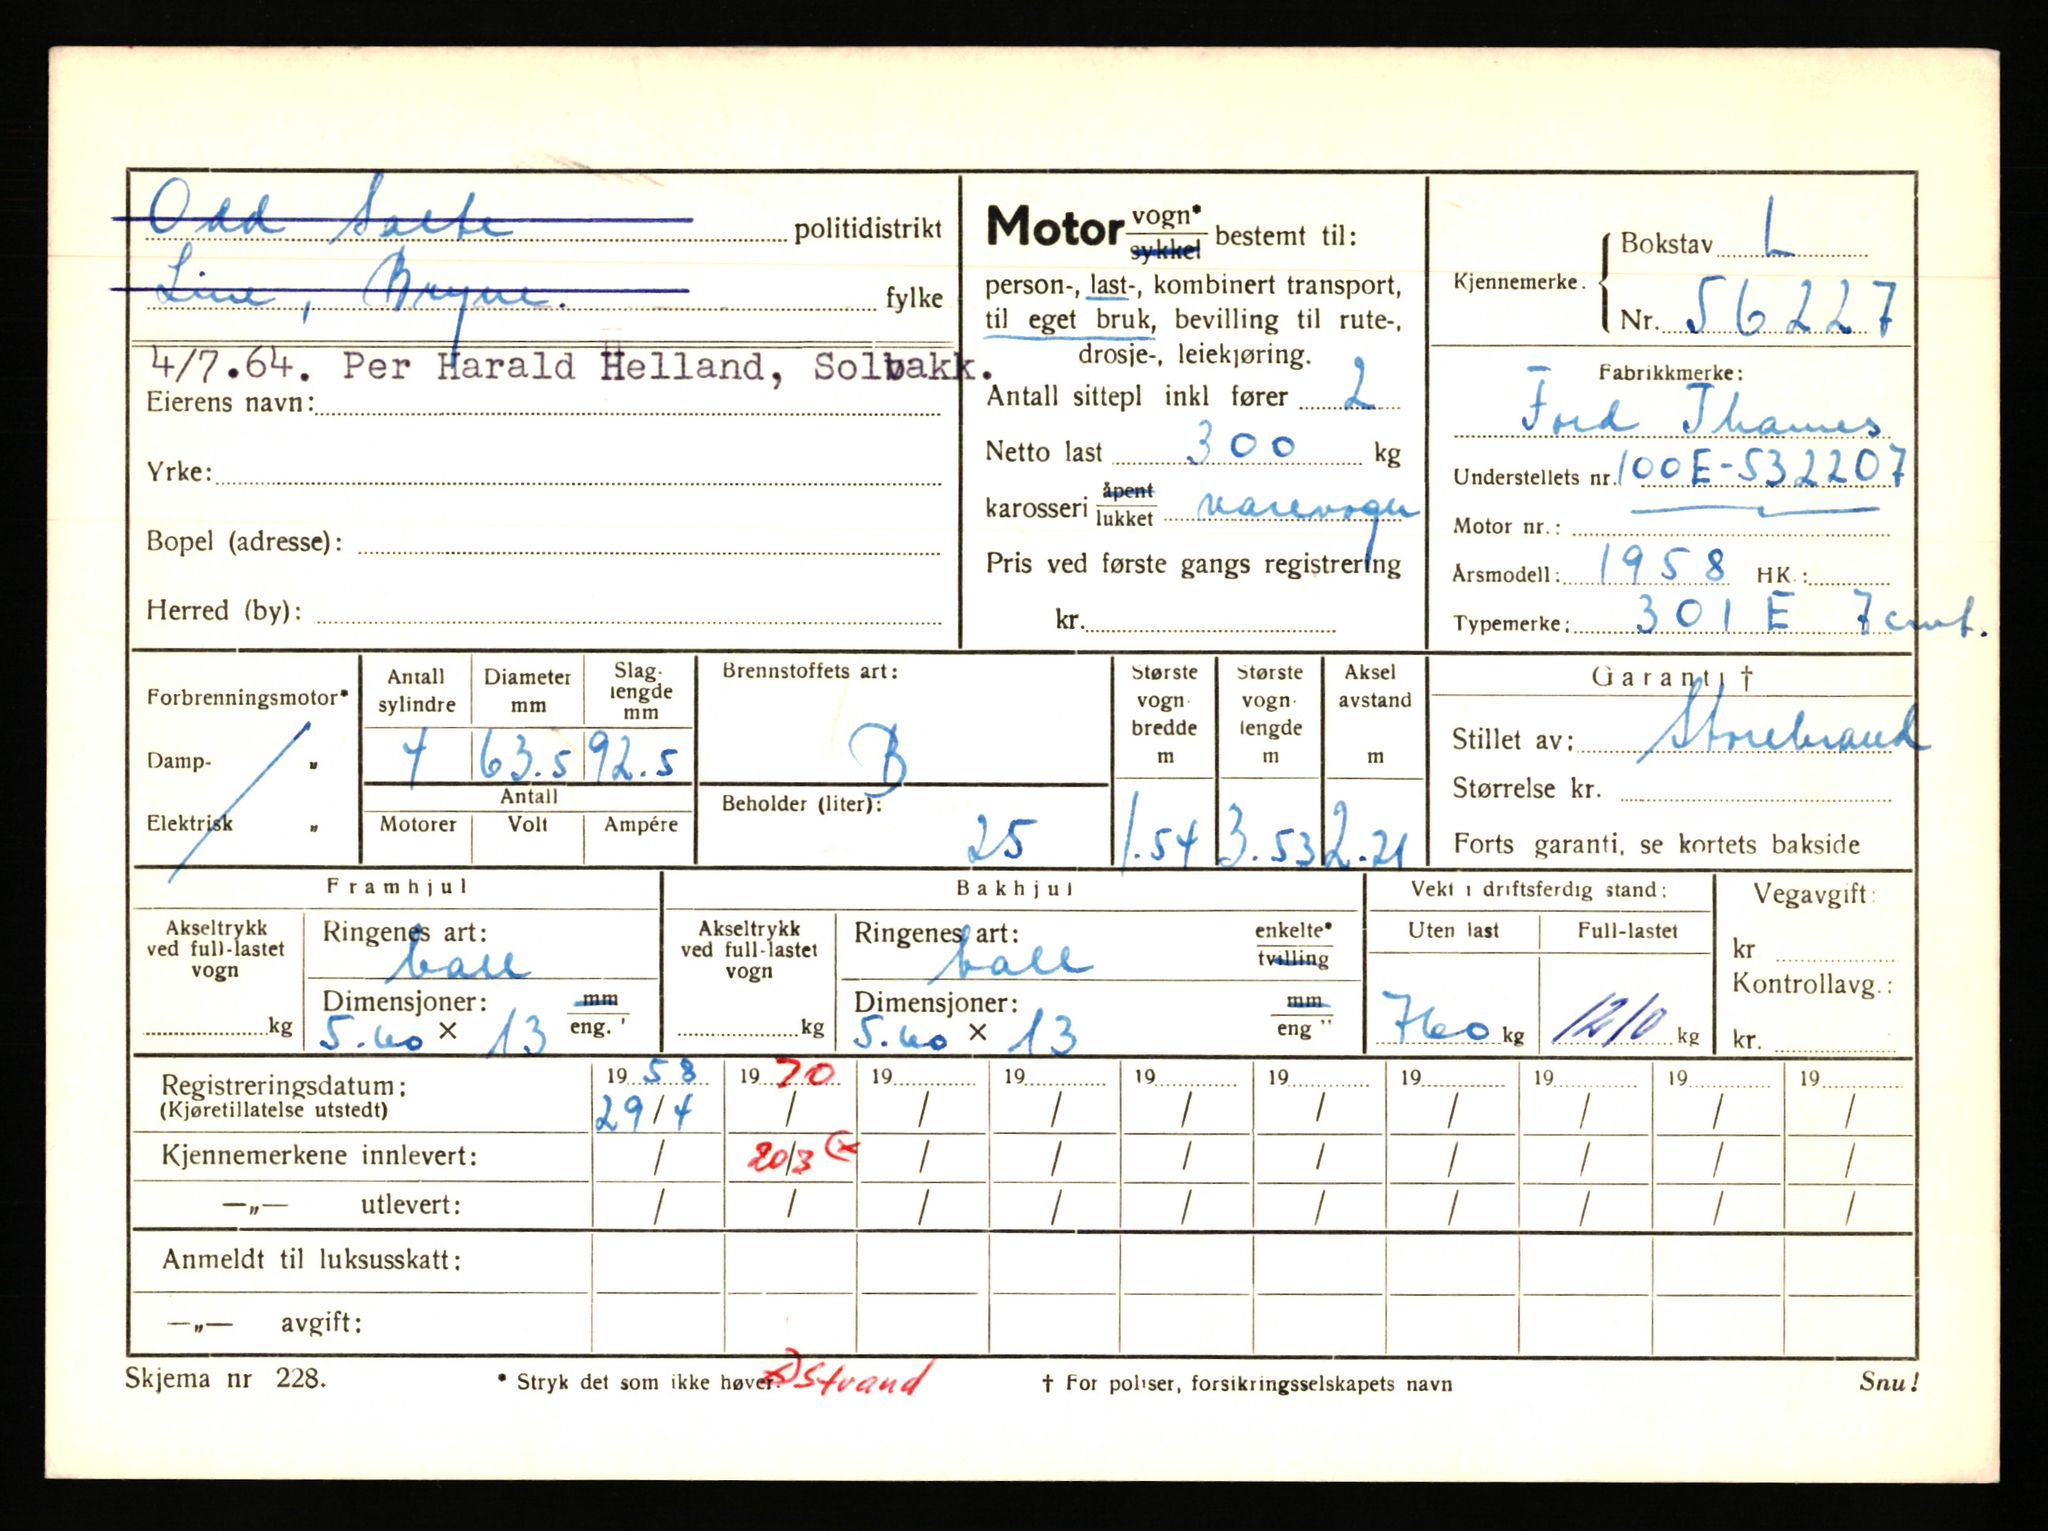 Odd Salte politidistrikt
Line, Bryne. fylke
4/7.64. Per Harald Helland, Solbakk.
Eierens navn:
Yrke:
Bopel (adresse):
Herred (by):
Motor vogn* sykkel bestemt til:
person-, last-, kombinert transport,
til eget bruk, bevilling til rute-,
drosje-, leiekjøring.
Antall sittepl inkl fører 2
Netto last 300 kg
karosseri åpent lukket varevogn
Pris ved første gangs registrering
kr.
Kjennemerke. Bokstav L
Nr. 56227
Fabrikkmerke:
Ford Thames
Understellets nr. 100E-532207
Motor nr.:
Årsmodell: 1958 HK.:
Typemerke: 301 E 7 cwt.
Forbrenningsmotor*
Damp- „
Elektrisk „
Antall sylindre
4
Diameter mm
63.5
Slag-lengde mm
92.5
Antall
Motorer Volt Ampére
Brennstoffets art:
B
Beholder (liter):
25
Største vogn-bredde m
1.54
Største vogn-lengde m
3.53
Aksel avstand m
2.21
Garanti †
Stillet av: Storebrand
Størrelse kr.
Forts garanti, se kortets bakside
Framhjul
Akseltrykk ved full-lastet vogn
kg
Ringenes art:
ball
Dimensjoner: mm eng. "
5.60 × 13
Bakhjul
Akseltrykk ved full-lastet vogn
kg
Ringenes art: enkelte* tvilling
ball
Dimensjoner: mm eng "
5.60 × 13
Vekt i driftsferdig stand:
Uten last Full-lastet
760 kg 1210 kg
Vegavgift:
kr
Kontrollavg.:
kr.
Registreringsdatum: 19 58 19 70 19 19 19 19 19 19 19 19
(Kjøretillatelse utstedt) 29/4 / / / / / / / / /
Kjennemerkene innlevert: / 20/3 (x / / / / / / / /
—„— utlevert: / / / / / / / / / /
Anmeldt til luksusskatt:
—„— avgift:
Skjema nr 228. * Stryk det som ikke høver. x) Strand † For poliser, forsikringsselskapets navn Snu!